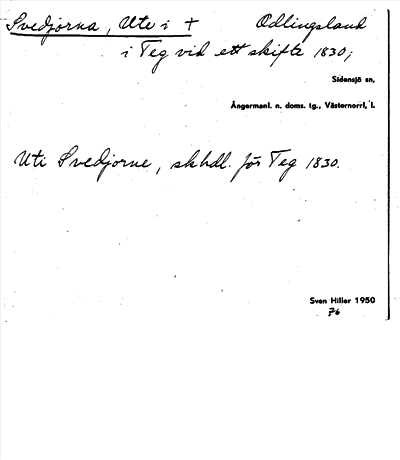 Svedjorna, Ute i † Odlingsland
i Teg vid ett skifte 1830;
Sidensjö sn,
Ångermanl. n. doms. tg., Västernorrl, l.
Uti Svedjorne, skhdl. för Teg 1830.
Sven Hiller 1950
76